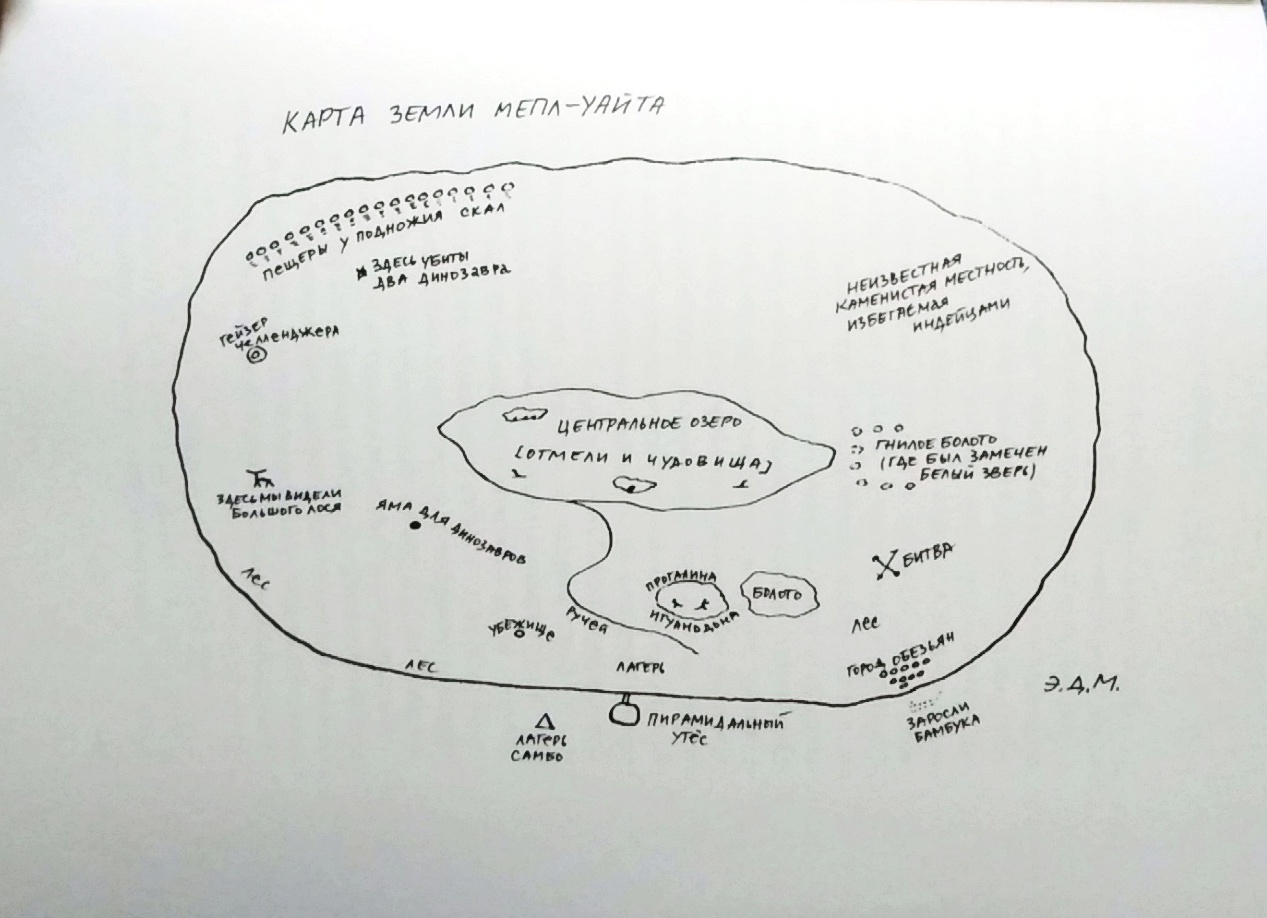 КАРТА ЗЕМЛИ МЕПЛ-УАЙТА
ПЕЩЕРЫ У ПОДНОЖИЯ СКАЛ
ЗДЕСЬ УБИТЫ
ДВА ДИНОЗАВРА
НЕИЗВЕСТНАЯ
КАМЕНИСТАЯ МЕСТНОСТЬ,
ИЗБЕГАЕМАЯ
ИНДЕЙЦАМИ
ГЕЙЗЕР
ЧЕЛЛЕНДЖЕРА
ЦЕНТРАЛЬНОЕ ОЗЕРО
[ОТМЕЛИ И ЧУДОВИЩА]
ГНИЛОЕ БОЛОТО
(ГДЕ БЫЛ ЗАМЕЧЕН
БЕЛЫЙ ЗВЕРЬ)
ЗДЕСЬ МЫ ВИДЕЛИ
БОЛЬШОГО ЛОСЯ
ЯМА ДЛЯ ДИНОЗАВРОВ
БИТВА
ЛЕС
ПРОГАЛИНА
ИГУАНОДОНА
БОЛОТО
УБЕЖИЩЕ
РУЧЕЙ
ЛЕС
ГОРОД ОБЕЗЬЯН
ЛЕС
ЛАГЕРЬ
Э.Д.М.
ЛАГЕРЬ
САМБО
ПИРАМИДАЛЬНЫЙ
УТЁС
ЗАРОСЛИ
БАМБУКА